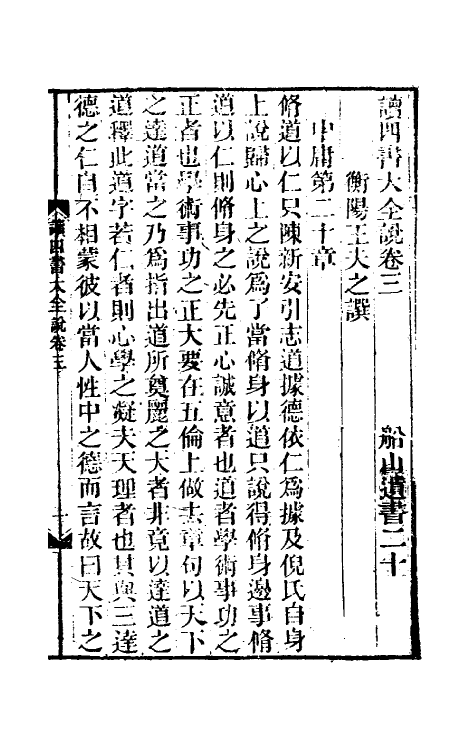 讀四書大全說卷三　船山遺書二十
衡陽王夫之譔
中庸第二十章
脩道以仁只陳新安引志道據德依仁爲據及倪氏自身
上說歸心上之說爲了當脩身以道只說得脩身邊事脩
道以仁則脩身之必先正心誠意者也道者學術事功之
正者也學術事功之正大要在五倫上做去章句以天下
之達道當之乃爲指出道所奠麗之大者非竟以達道之
道釋此道字若仁者則心學之凝夫天理者也其與三達
德之仁自不相蒙彼以當人性中之德而言故曰天下之
讀四書大全說卷三
一